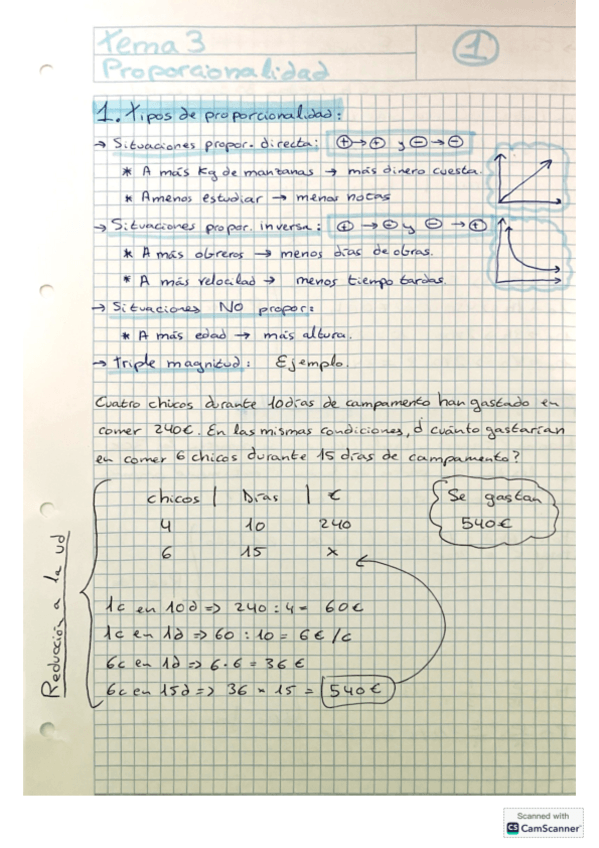 Tema 3
1
Proporcionalidad
1. Tipos de proporcionalidad:
→ Situaciones propor. directa: ⊕→⊕ y ⊖→⊖
* A más Kg de manzanas → más dinero cuesta.
* A menos estudiar → menos notas
→ Situaciones propor. inversa: ⊕ → ⊖ y ⊖ → ⊕
* A más obreros → menos días de obras.
* A más velocidad → menos tiempo tardas.
→ Situaciones NO propor:
* A más edad → más altura.
→ Triple magnitud: Ejemplo.
Cuatro chicos durante 10 días de campamento han gastado en
comer 240€. En las mismas condiciones, ¿cuánto gastarían
en comer 6 chicos durante 15 días de campamento?
chicos | Días | €
4 10 240
6 15 x
Se gastan
540€
Reducción a la ud
1c en 10d => 240 : 4 = 60€
1c en 1d => 60 : 10 = 6€/c
6c en 1d => 6·6 = 36€
6c en 15d => 36 × 15 = 540€
Scanned with
CS CamScanner